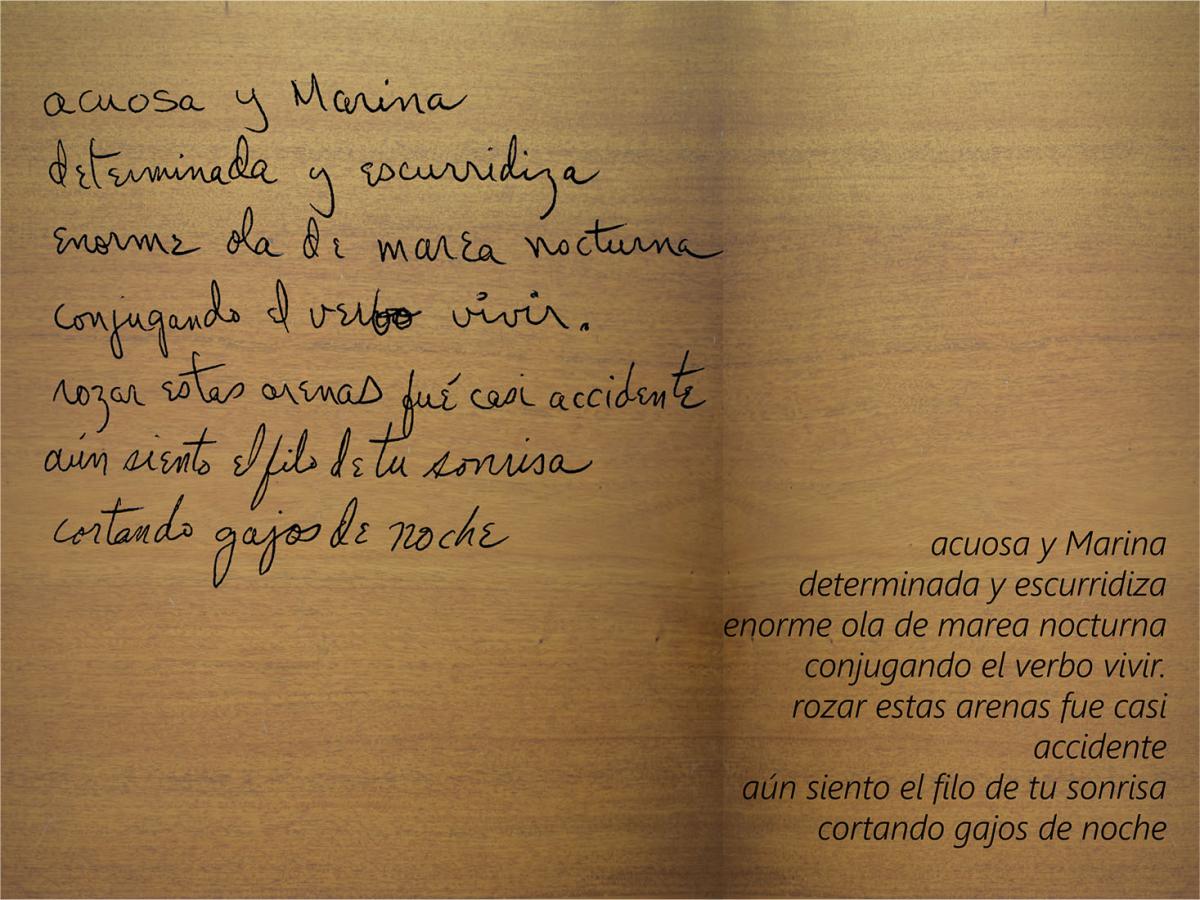 acuosa y Marina
determinada y escurridiza
enorme ola de marea nocturna
conjugando el verbo vivir.
rozar estas arenas fué casi accidente
aún siento el filo de tu sonrisa
cortando gajos de noche
acuosa y Marina
determinada y escurridiza
enorme ola de marea nocturna
conjugando el verbo vivir.
rozar estas arenas fue casi
accidente
aún siento el filo de tu sonrisa
cortando gajos de noche